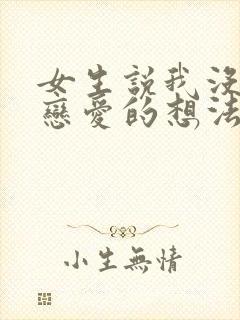 女生說我沒
戀愛的想法
小生無情